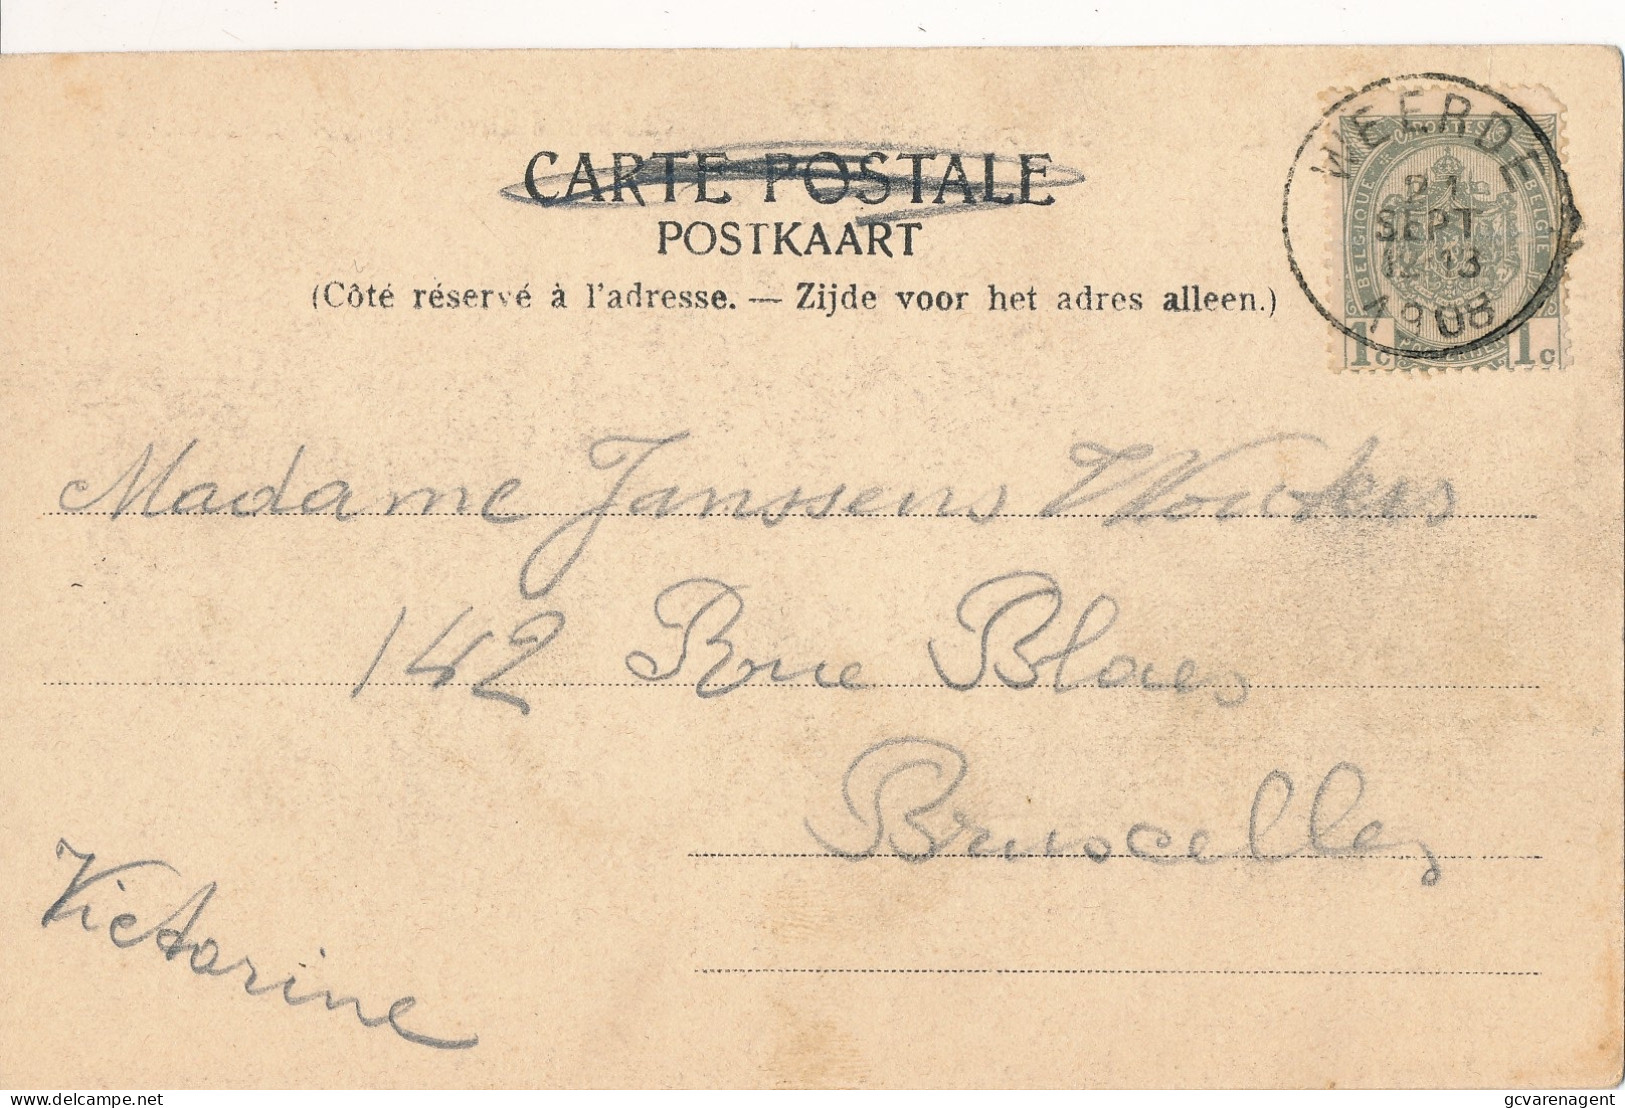 CARTE POSTALE
POSTKAART
(Côté réservé à l'adresse. — Zijde voor het adres alleen.)
WEERDE
21
SEPT
12-13
1908
POSTES
BELGIQUE
BELGIE
POSTERIJEN
1c 1c
Madame Janssens Wouters
142 Rue Blaes
Bruxelles
Victorine
delcampe.net
gcvarenagent